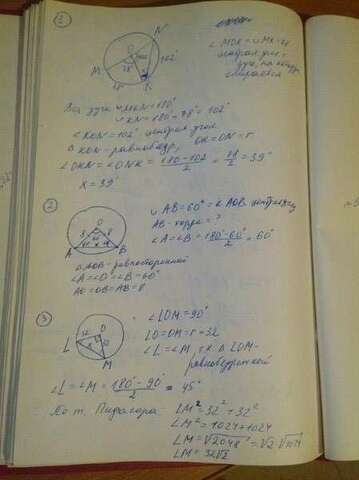 ①
N
O
M
78°
102°
K
∠MOK = ∪MK = 78
центральный
дуга, на которую
опирается
Вся дуга ∪MKN = 180°
∪KN = 180° - 78° = 102°
∠KON = 102° центральный угол
△KON - равнобедр, OK = ON = r
∠OKN = ∠ONK = 180 - 102 / 2 = 78 / 2 = 39°
X = 39°
②
O
8 8
60°
A B
∪AB = 60° = ∠AOB - центральный
AB - хорда = ?
∠A = ∠B = 180° - 60° / 2 = 60°
△AOB - равносторонний
∠A = ∠O = ∠B = 60°
AO = OB = AB = 8
③
O
32
L
M
∠LOM = 90°
LO = OM = r = 32
∠L = ∠M т.к △ LOM -
равнобедренный
∠L = ∠M = 180° - 90° / 2 = 45°
По т. Пифагора
LM² = 32² + 32²
LM² = 1024 + 1024
LM = √2048 = √2 √1024
LM = 32√2